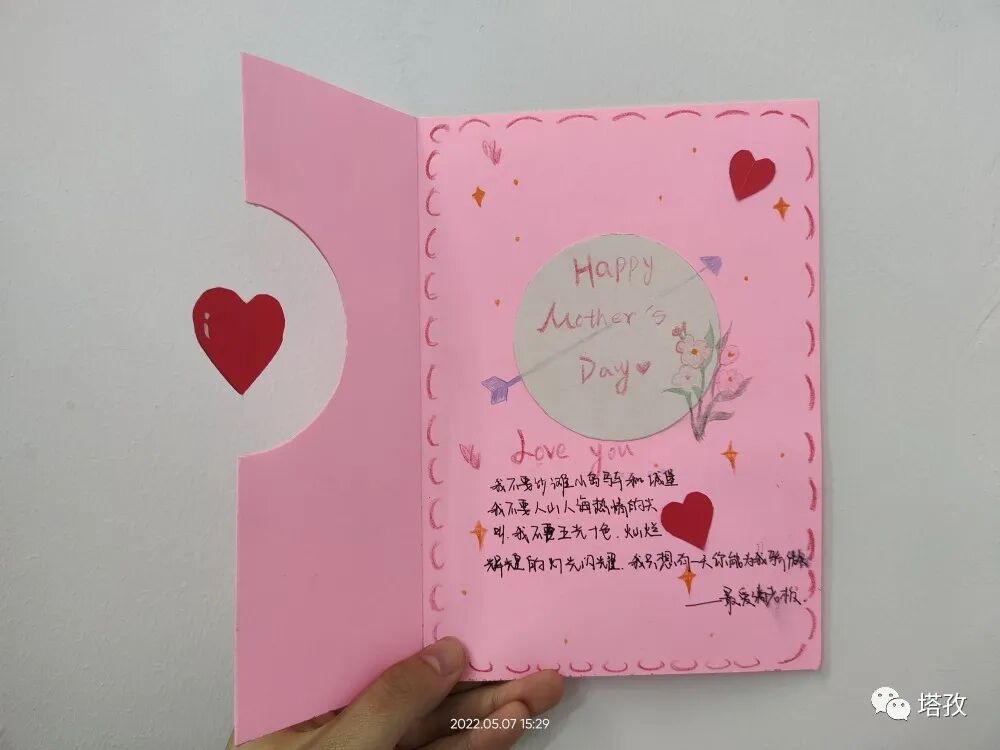 Happy
Mother's
Day
Love you
我不要沙滩小马车和城堡
我不要人山人海热情的尖
叫.我不要五光十色.灿烂
辉煌的灯光闪耀.我只想有一天你能为我骄傲
——最爱老板.
2022.05.07 15:29
塔孜